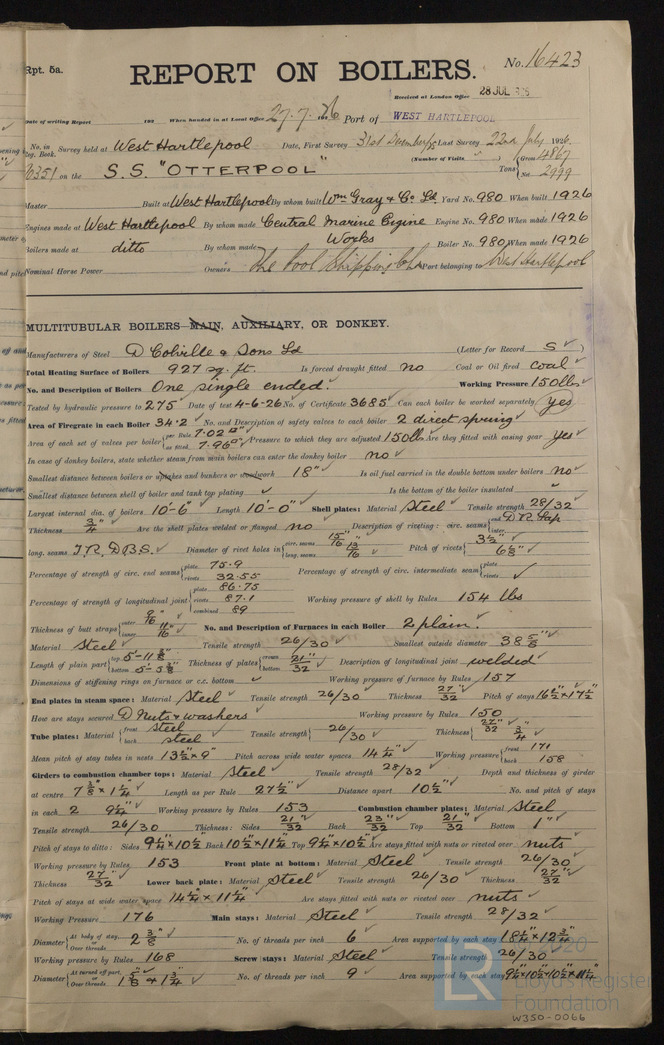 Rpt. 5a.
No. 16423
REPORT ON BOILERS.
Received at London Office 28 JUL 1926
Date of writing Report 192 When handed in at Local Office 27.7.26 Port of WEST HARTLEPOOL
No. in Reg. Book. Survey held at West Hartlepool Date, First Survey 31st December/25 Last Survey 22nd July 1926
(Number of Visits )
on the S.S. "OTTERPOOL" Tons Gross 4867 Net 2999
Master Built at West Hartlepool By whom built Wm Gray & Co. Ld Yard No. 980 When built 1926
Engines made at West Hartlepool By whom made Central Marine Engine Works Engine No. 980 When made 1926
Boilers made at ditto By whom made Boiler No. 980 When made 1926
Nominal Horse Power Owners The Pool Shipping Co Ld Port belonging to West Hartlepool
MULTITUBULAR BOILERS MAIN, AUXILIARY, OR DONKEY.
Manufacturers of Steel D Colville & Sons Ld (Letter for Record S)
Total Heating Surface of Boilers 927 sq. ft. Is forced draught fitted no Coal or Oil fired coal
No. and Description of Boilers One single ended. Working Pressure 150 lbs
Tested by hydraulic pressure to 275 Date of test 4-6-26 No. of Certificate 3685 Can each boiler be worked separately yes
Area of Firegrate in each Boiler 34.2 No. and Description of safety valves to each boiler 2 direct spring
Area of each set of valves per boiler per Rule 7.02 as fitted 7.96 Pressure to which they are adjusted 150 lbs Are they fitted with easing gear yes
In case of donkey boilers, state whether steam from main boilers can enter the donkey boiler no
Smallest distance between boilers or uptakes and bunkers or woodwork 18" Is oil fuel carried in the double bottom under boilers no
Smallest distance between shell of boiler and tank top plating Is the bottom of the boiler insulated
Largest internal dia. of boilers 10'-6" Length 10'-0" Shell plates: Material Steel Tensile strength 28/32
Thickness 3/4" Are the shell plates welded or flanged no Description of riveting: circ. seams end D R Lap
long. seams T.R.D.B.S. Diameter of rivet holes in circ. seams 15/16" long. seams 13/16 Pitch of rivets 3 1/2" 6 1/8"
Percentage of strength of circ. end seams plate 75.9 rivets 32.55 Percentage of strength of circ. intermediate seam plate rivets
Percentage of strength of longitudinal joint plate 86.75 rivets 87.1 combined 89 Working pressure of shell by Rules 154 lbs
Thickness of butt straps outer 9/16" inner 11/16" No. and Description of Furnaces in each Boiler 2 plain.
Material Steel Tensile strength 26/30 Smallest outside diameter 38 5/8"
Length of plain part top 5'-11 3/8" bottom 5'-5 3/8" Thickness of plates crown bottom 21/32" Description of longitudinal joint welded
Dimensions of stiffening rings on furnace or c.c. bottom Working pressure of furnace by Rules 157
End plates in steam space: Material Steel Tensile strength 26/30 Thickness 27/32" Pitch of stays 16 1/2" x 17 1/2"
How are stays secured D Nuts & washers Working pressure by Rules 150
Tube plates: Material front steel back steel Tensile strength 26/30 Thickness 27/32" 3/4"
Mean pitch of stay tubes in nests 13 1/2" x 9" Pitch across wide water spaces 14 1/4" Working pressure front 171 back 158
Girders to combustion chamber tops: Material Steel Tensile strength 28/32 Depth and thickness of girder
at centre 7 3/8" x 1 1/4" Length as per Rule 27 1/2" Distance apart 10 1/2" No. and pitch of stays
in each 2 9 1/4" Working pressure by Rules 153 Combustion chamber plates: Material Steel
Tensile strength 26/30 Thickness: Sides 21/32" Back 23/32" Top 21/32" Bottom 1"
Pitch of stays to ditto: Sides 9 1/4" x 10 1/2" Back 10 1/2" x 11 1/4" Top 9 1/4" x 10 1/2" Are stays fitted with nuts or riveted over nuts
Working pressure by Rules 153 Front plate at bottom: Material Steel Tensile strength 26/30
Thickness 27/32" Lower back plate: Material Steel Tensile strength 26/30 Thickness 27/32"
Pitch of stays at wide water space 14 1/4" x 11 1/4" Are stays fitted with nuts or riveted over nuts
Working Pressure 176 Main stays: Material Steel Tensile strength 28/32
Diameter At body of stay, or Over threads 2 3/8 No. of threads per inch 6 Area supported by each stay 18 1/4" x 12 3/4"
Working pressure by Rules 168 Screw stays: Material Steel Tensile strength 26/30
Diameter At turned off part, or Over threads 1 5/8" & 1 3/4" No. of threads per inch 9 Area supported by each stay 9 1/4" x 10 1/2" & 10 1/2" x 11 1/4"
© 2020
LR
Lloyd's Register
Foundation
W350-0066